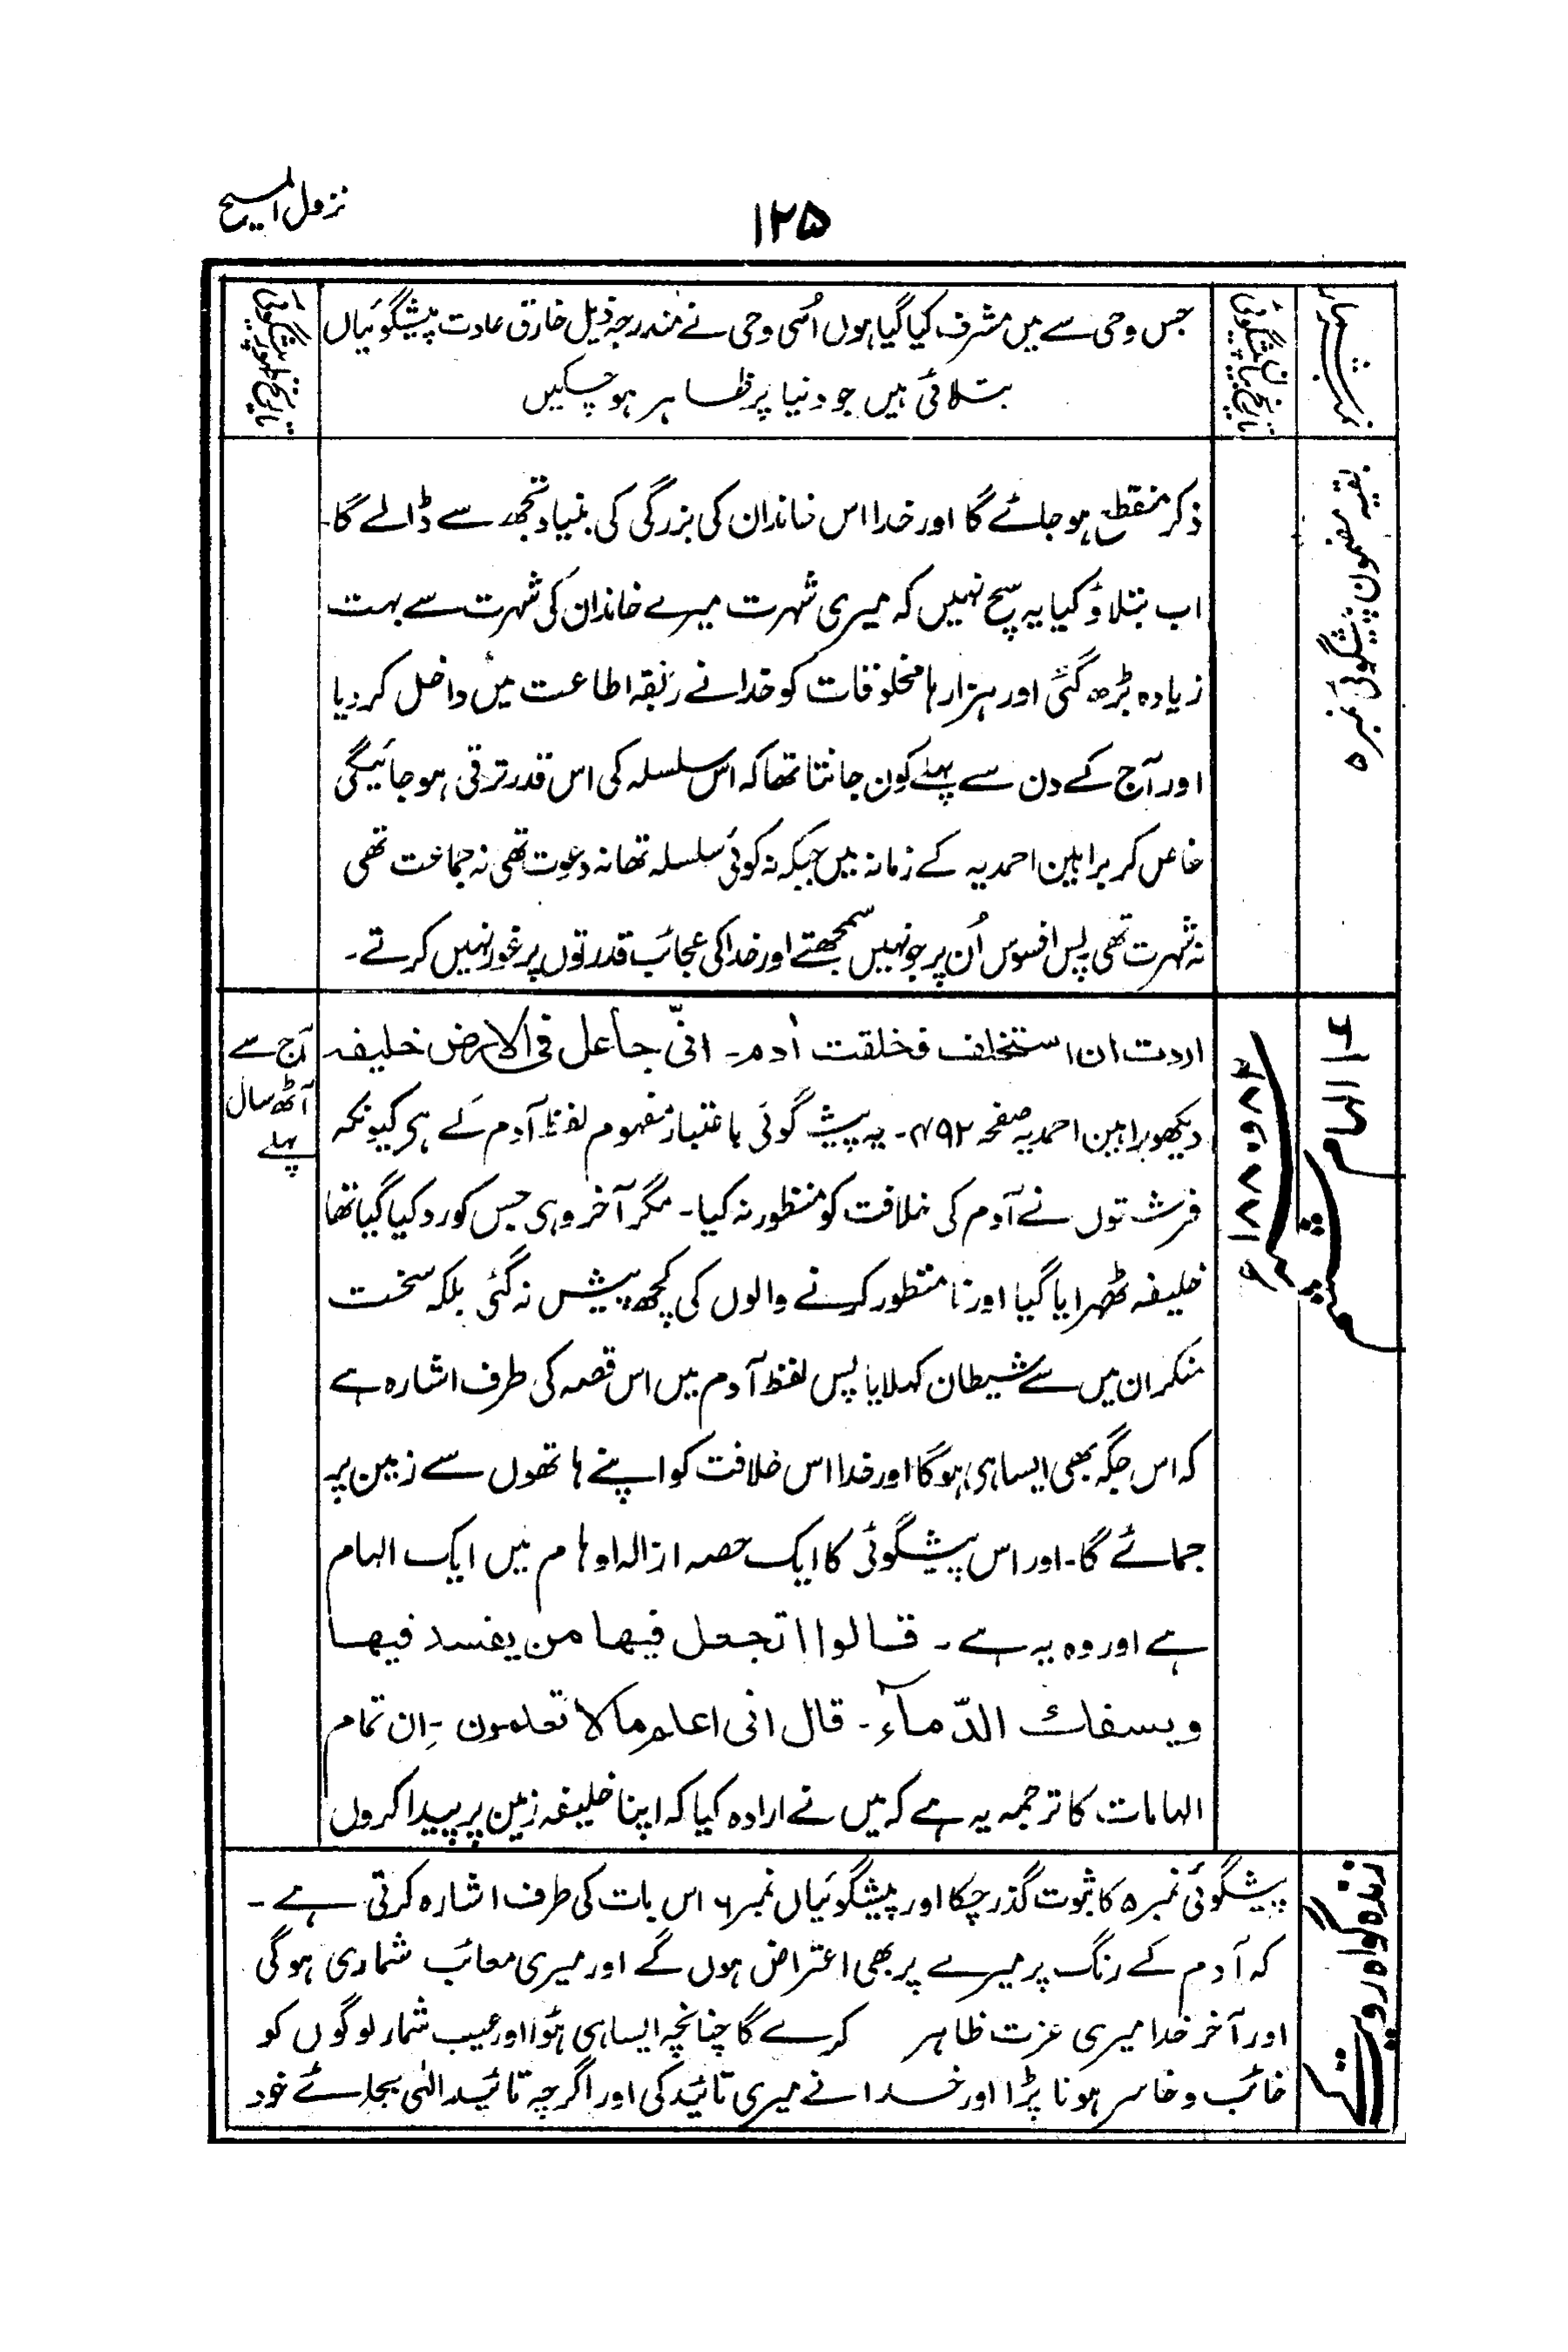 نزول المسیح
۱۲۵
نمبر شمار
تاریخ بیان پیشگوئی
جس وحی سے میں مشرف کیا گیا ہوں اُسی وحی نے مندرجہ ذیل خارق عادت پیشگوئیاں
بتلائی ہیں جو دنیا پر ظاہر ہو چکیں
تاریخ ظہور پیشگوئی
بقیہ مضمون پیشگوئی نمبر ۵
ذکر منقطع ہو جائے گا اور خدا اس خاندان کی بزرگی کی بنیاد تجھ سے ڈالے گا۔
اب بتلاؤ کیا یہ سچ نہیں کہ میری شہرت میرے خاندان کی شہرت سے بہت
زیادہ بڑھ گئی اور ہزارہا مخلوقات کو خدا نے ربقہ اطاعت میں داخل کر دیا
اور آج کے دن سے پہلے کون جانتا تھا کہ اس سلسلہ کی اس قدر ترقی ہو جائیگی
خاص کر براہین احمدیہ کے زمانہ میں جبکہ نہ کوئی سلسلہ تھا نہ دعوت تھی نہ جماعت تھی
نہ شہرت تھی پس افسوس اُن پر جو نہیں سمجھتے اور خدا کی عجائب قدرتوں پر غور نہیں کرتے۔
۶
الہام
اردت ان استخلف فخلقت اٰدم۔ انّی جاعل فی الارض خلیفہ
دیکھو براہین احمدیہ صفحہ ۴۹۲۔ یہ پیشگوئی باعتبار مفہوم لفظ آدم کے ہے کیونکہ
فرشتوں نے آدم کی خلافت کو منظور نہ کیا۔ مگر آخر وہی جس کو رد کیا گیا تھا
خلیفہ ٹھہرایا گیا اور نا منظور کرنے والوں کی کچھ پیش نہ گئی بلکہ سخت
منکران میں سے شیطان کہلایا پس لفظ آدم میں اس قصہ کی طرف اشارہ ہے
کہ اس جگہ بھی ایسا ہی ہوگا اور خدا اس خلافت کو اپنے ہاتھوں سے زمین پر
جمائے گا۔ اور اس پیشگوئی کا ایک حصہ ازالہ اوہام میں ایک الہام
ہے اور وہ یہ ہے۔ قالوا اتجعل فیھا من یفسد فیھا
ویسفك الدّمآء۔ قال انی اعلم مالا تعلمون۔ اِن تمام
الہامات کا ترجمہ یہ ہے کہ میں نے ارادہ کیا کہ اپنا خلیفہ زمین پر پیدا کروں
آج سے
آٹھ سال
پہلے
زندہ گواہ رویت کے
پیشگوئی نمبر ۵ کا ثبوت گذر چکا اور پیشگوئیاں نمبر ۶ اس بات کی طرف اشارہ کرتی ہے۔
کہ آدم کے رنگ پر میرے پر بھی اعتراض ہوں گے اور میری معائب شماری ہوگی
اور آخر خدا میری عزت ظاہر کرے گا چنانچہ ایسا ہی ہؤا اور عیب شمار لوگوں کو
خائب و خاسر ہونا پڑا اور خدا نے میری تائید کی اور اگرچہ تائید الٰہی بجائے خود